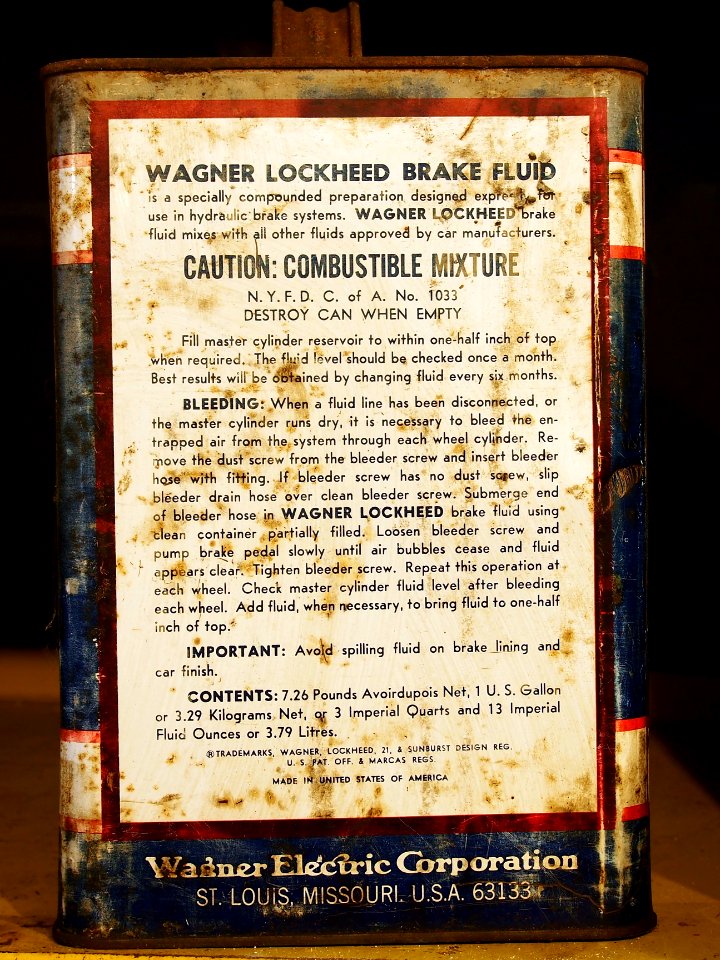 WAGNER LOCKHEED BRAKE FLUID
is a specially compounded preparation designed expressly for
use in hydraulic brake systems. WAGNER LOCKHEED brake
fluid mixes with all other fluids approved by car manufacturers.
CAUTION: COMBUSTIBLE MIXTURE
N.Y.F.D. C. of A. No. 1033
DESTROY CAN WHEN EMPTY
Fill master cylinder reservoir to within one-half inch of top
when required. The fluid level should be checked once a month.
Best results will be obtained by changing fluid every six months.
BLEEDING: When a fluid line has been disconnected, or
the master cylinder runs dry, it is necessary to bleed the en-
trapped air from the system through each wheel cylinder. Re-
move the dust screw from the bleeder screw and insert bleeder
hose with fitting. If bleeder screw has no dust screw, slip
bleeder drain hose over clean bleeder screw. Submerge end
of bleeder hose in WAGNER LOCKHEED brake fluid using
clean container partially filled. Loosen bleeder screw and
pump brake pedal slowly until air bubbles cease and fluid
appears clear. Tighten bleeder screw. Repeat this operation at
each wheel. Check master cylinder fluid level after bleeding
each wheel. Add fluid, when necessary, to bring fluid to one-half
inch of top.
IMPORTANT: Avoid spilling fluid on brake lining and
car finish.
CONTENTS: 7.26 Pounds Avoirdupois Net, 1 U. S. Gallon
or 3.29 Kilograms Net, or 3 Imperial Quarts and 13 Imperial
Fluid Ounces or 3.79 Litres.
® TRADEMARKS, WAGNER, LOCKHEED, 21, & SUNBURST DESIGN REG.
U. S. PAT. OFF. & MARCAS REGS.
MADE IN UNITED STATES OF AMERICA
Wagner Electric Corporation
ST. LOUIS, MISSOURI. U.S.A. 63133